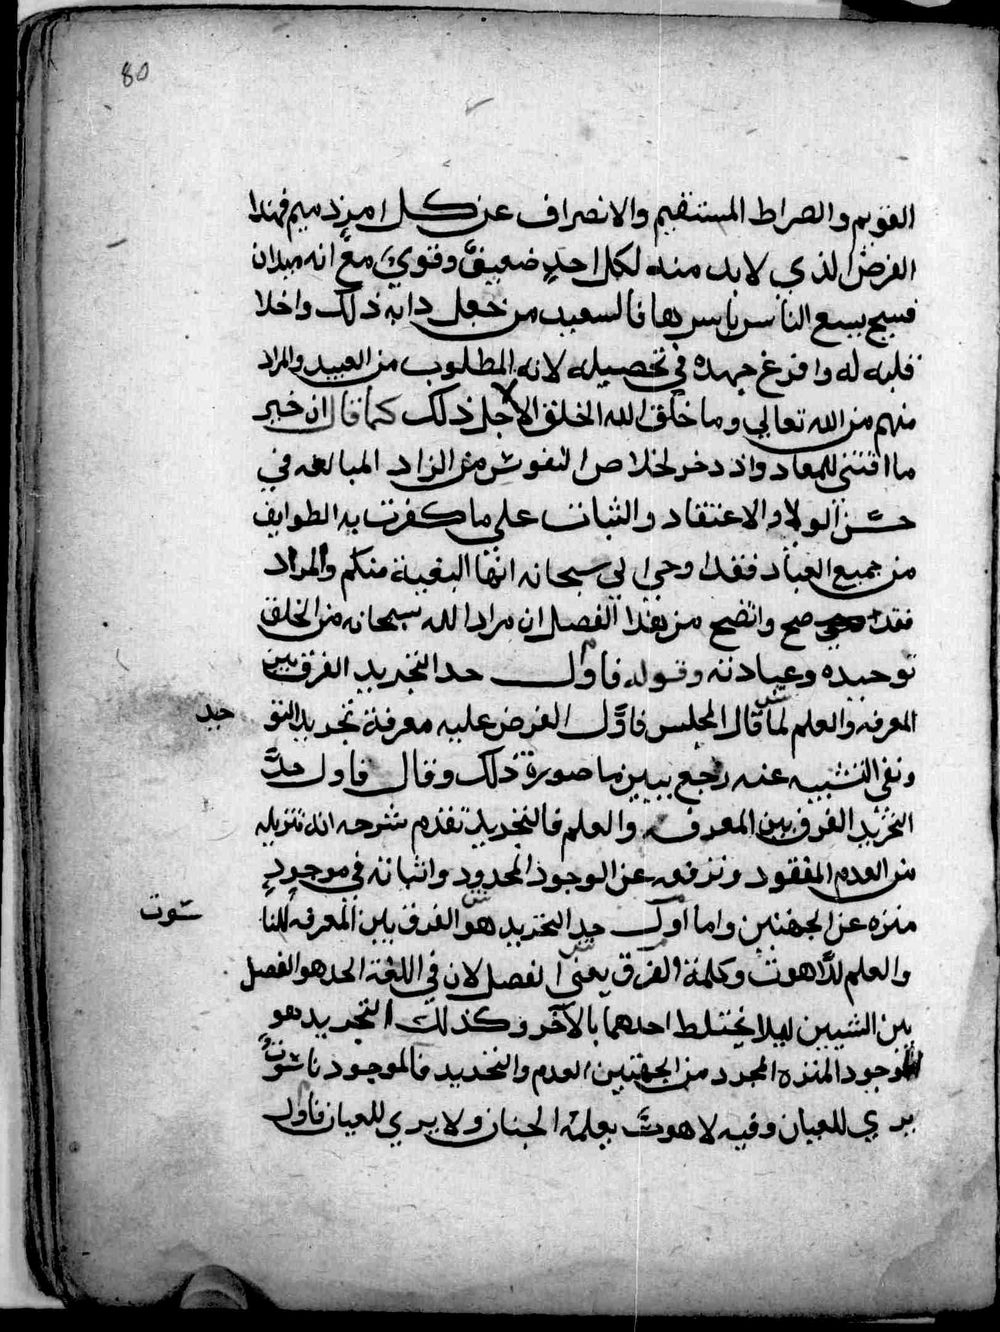 80
القويم والصراط المستقيم والانصراف عن كل امر ذميم فهذا
الفرض الذي لابد منه لكل احد ضعيف وقوي مع انه ميدان
فسيح يسع الناس باسرها فالسعيد من جعل دابه ذلك واخلا
قلبه له وافرغ جهده في تحصيله لانه المطلوب من العبيد والمراد
منهم من الله تعالي وما خلق الله الخلق الا لاجل ذلك كما قال ان خير
ما اقتني للمعاد واذدخر لخلاص النفوس من الزاد المبالغه في
حسن الولا والاعتقاد والثبات علي ما كفرت به الطوايف
من جميع العباد فقد اوحي الي سبحانه انها البغية منكم والمراد
فقد صح واتضح من هذا الفصل ان مراد الله سبحانه من الخلق
توحيده وعبادته وقوله فاول حد التجريد الفرق بين
المعرفه والعلم لما قال المجلس فاول الفرض عليه معرفة تجريد التو
حيد
ونفي التشبيه عنه رجع يبين ما صورة ذلك وقال فاول حد
التجريد الفرق بين المعرفه والعلم فالتجريد تقدم شرحه انه تنزيله
من العدم المفقود وترفعه عن الوجود المحدود واثباته في موجود
منزه عن الجهتين واما اول حد التجريد هو الفرق بين المعرفه للنا
سوت
والعلم للاهوت وكلمة الفرق يعني الفصل لان في اللغة الحد هو الفصل
بين الشيين ليلا يختلط احدهما بالآخر وكذلك التجريد هو
الموجود المنزه المجرد من الجهتين العدم والتحديد فالموجود ناسوت
يري للعيان وفيه لاهوت يعلمه الجنان ولا يري للعيان فاول